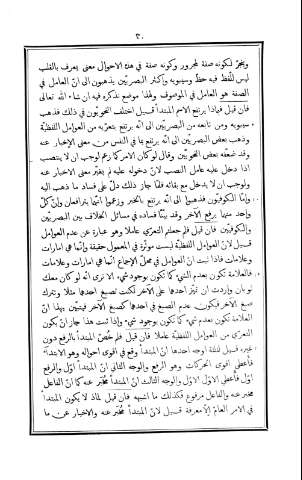 ٣٠
ويجرّ لكونه صفة لمجرور وكونه صفة في هذه الاحوال معنى يعرف بالقلب
ليس للّفظ فيه حظّ وسيبويه واكثر البصريّين يذهبون الى انّ العامل في
الصفة هو العامل في الموصوف ولهذا موضع نذكره فيه ان شاء الله تعالى
فان قيل فبماذا يرتفع الاسم المبتدأ قيل اختلف النحويّون في ذلك فذهب
سيبويه ومن تابعه من البصريّين الى انّه يرتفع بتعرّيه من العوامل اللفظيّة
وذهب بعض البصريّين الى انّه يرتفع بما في النفس من معنى الإخبار عنه
وقد ضعّفه بعض النحويّين وقال لو كان الامر كما زعم لوجب ان لا ينتصب
اذا دخل عليه عامل النصب لانّ دخوله عليه لم يغيّر معنى الاخبار عنه
ولوجب ان لا يدخل مع بقائه فلمّا جاز ذلك دلّ على فساد ما ذهب اليه
وامّا الكوفيّون فذهبوا الى انّه يرتفع بالخبر وزعموا انّهما يترافعان وانّ كلّ
واحد منهما يرفع الآخر وقد بيّنّا فساده في مسائل الخلاف بين البصريّين
والكوفيّين فان قيل فلم جعلتم التعرّي عاملا وهو عبارة عن عدم العوامل
قيل لانّ العوامل اللفظيّة ليست مؤثّرة في المعمول حقيقة وانّما هي امارات
وعلامات فاذا ثبت انّ العوامل في محلّ الاجماع انّما هي امارات وعلامات
فالعلامة تكون بعدم الشيء كما تكون بوجود شيء الا ترى انّه لو كان معك
ثوبان واردت ان تميّز احدها على الآخر لكنت تصبغ احدها مثلا وتترك
صبغ الآخر فيكون عدم الصبغ في احدها كصبغ الآخر فيتبيّن بهذا انّ
العلامة تكون بعدم شيء كما تكون بوجود شيء واذا ثبت هذا جاز ان يكون
التعرّي من العوامل اللفظيّة عاملا فان قيل فلم خُصّ المبتدأ بالرفع دون
غيره قيل لثلثة اوجه احدها انّ المبتدأ وقع في اقوى احواله وهو الابتداء
فأُعطي اقوى الحركات وهو الرفع والوجه الثاني انّ المبتدأ اوّل والرفع
اوّل فأعطي الاوّل الاوّل والوجه الثالث انّ المبتدأ مُخبَر عنه كما انّ الفاعل
مخبر عنه والفاعل مرفوع فكذلك ما اشبهه فان قيل لماذا لا يكون المبتدأ
في الامر العامّ الّا معرفة قيل لانّ المبتدأ مُخبَر عنه والاخبار عن ما